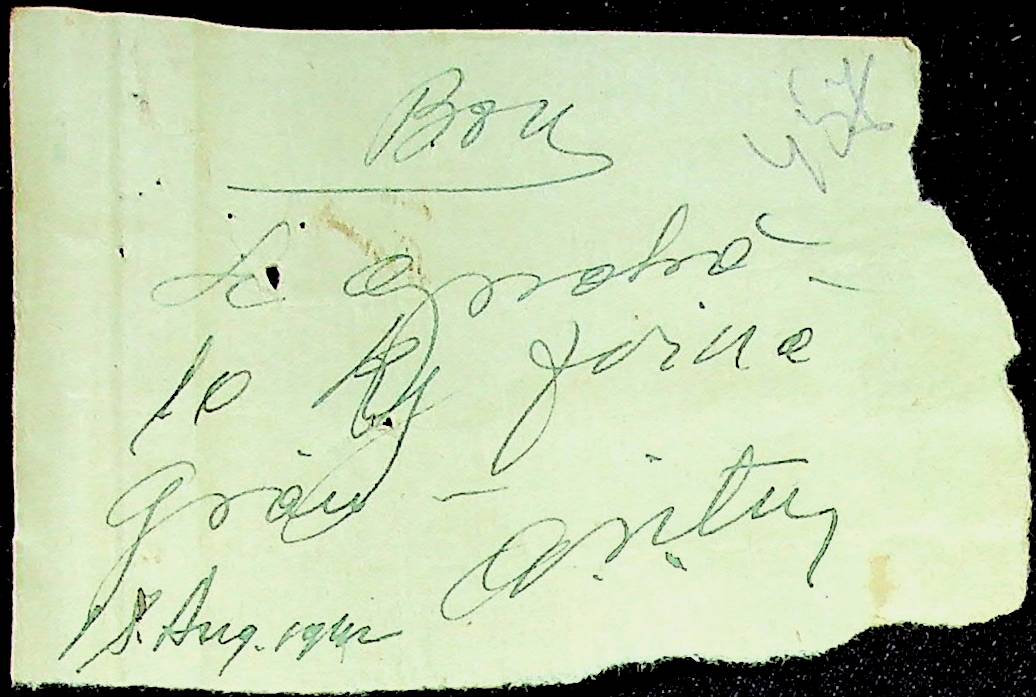 Bon
Se aprobă
10 Kg făină
grâu —
18. Aug. 1942